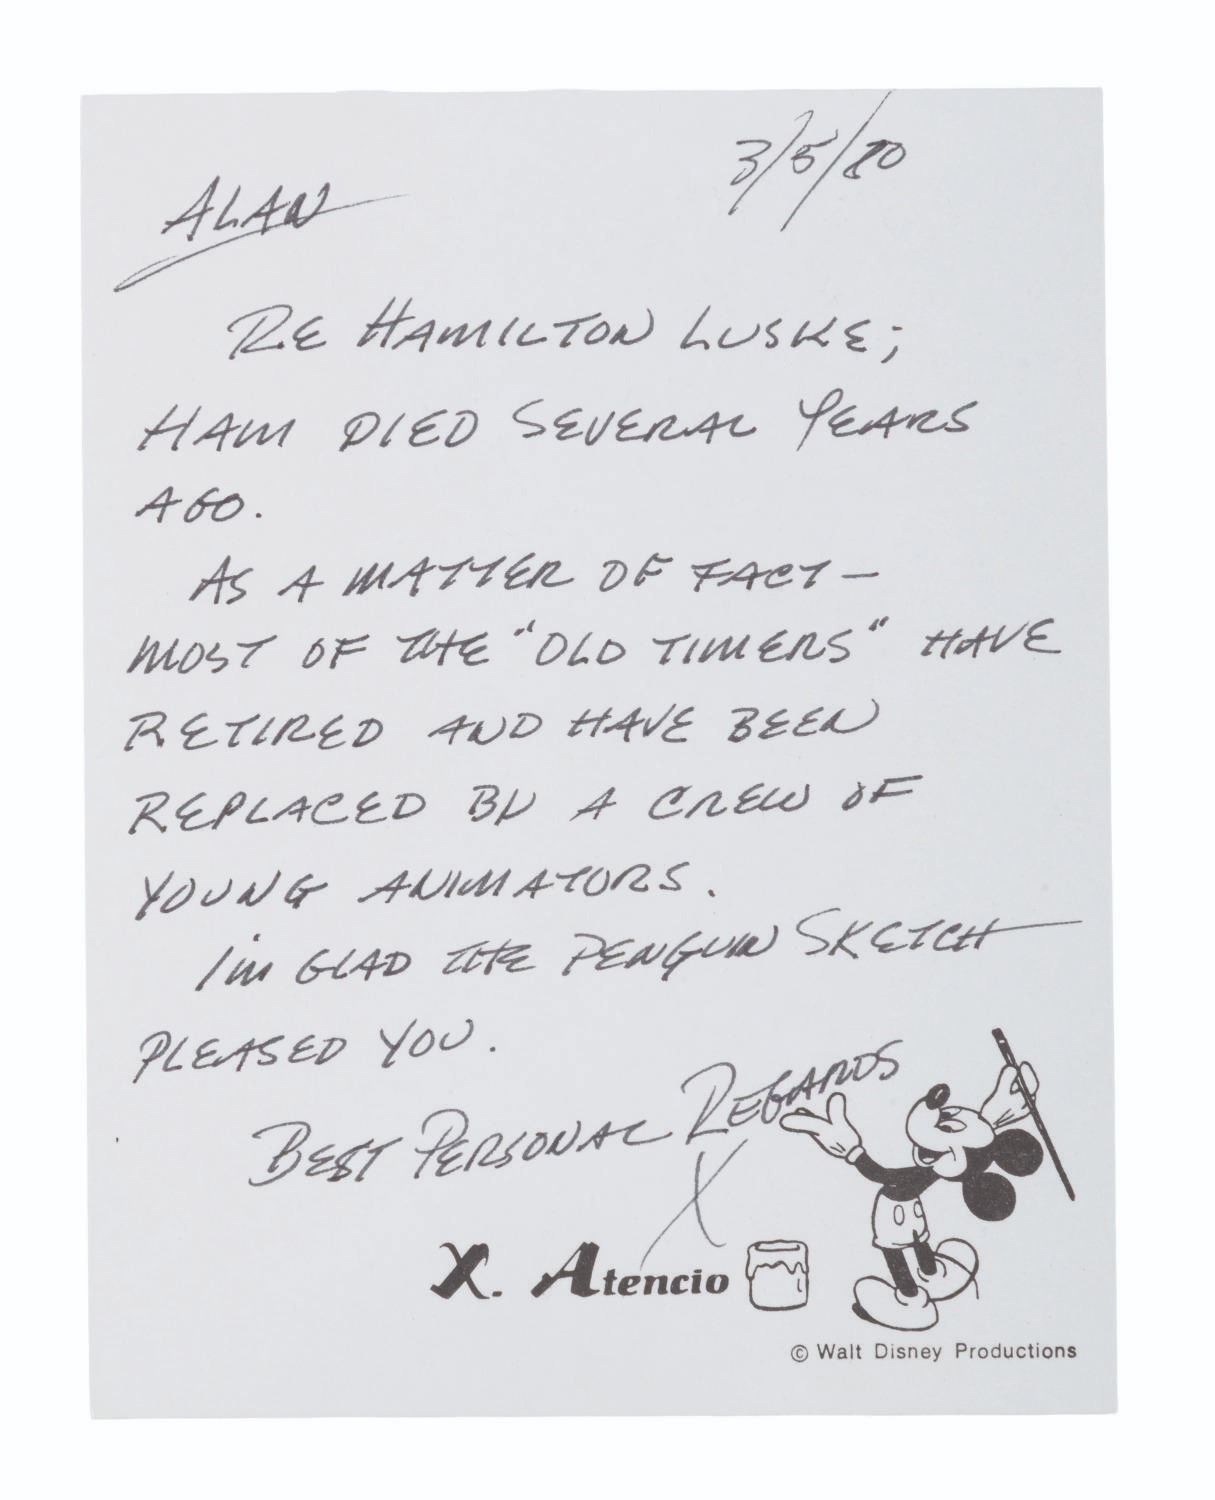 3/5/80
ALAN
RE HAMILTON LUSKE;
HAM DIED SEVERAL YEARS
AGO.
AS A MATTER OF FACT —
MOST OF THE "OLD TIMERS" HAVE
RETIRED AND HAVE BEEN
REPLACED BY A CREW OF
YOUNG ANIMATORS.
I'M GLAD THE PENGUIN SKETCH
PLEASED YOU.
BEST PERSONAL REGARDS
X
X. Atencio
© Walt Disney Productions